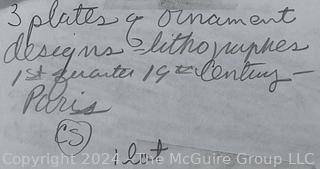 3 plates of ornament
designs - lithographes
1st quarter 19th Century -
Paris
CS
1 lot
Copyright 2024 The McGuire Group LLC